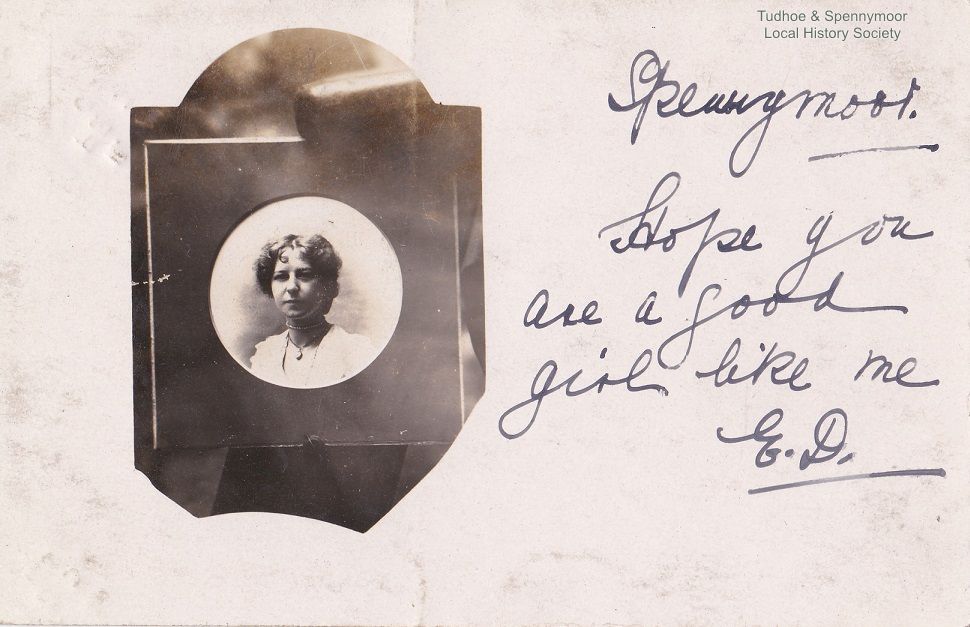 Tudhoe & Spennymoor
Local History Society
Spennymoor.
Hope you
are a good
girl like me
E.D.